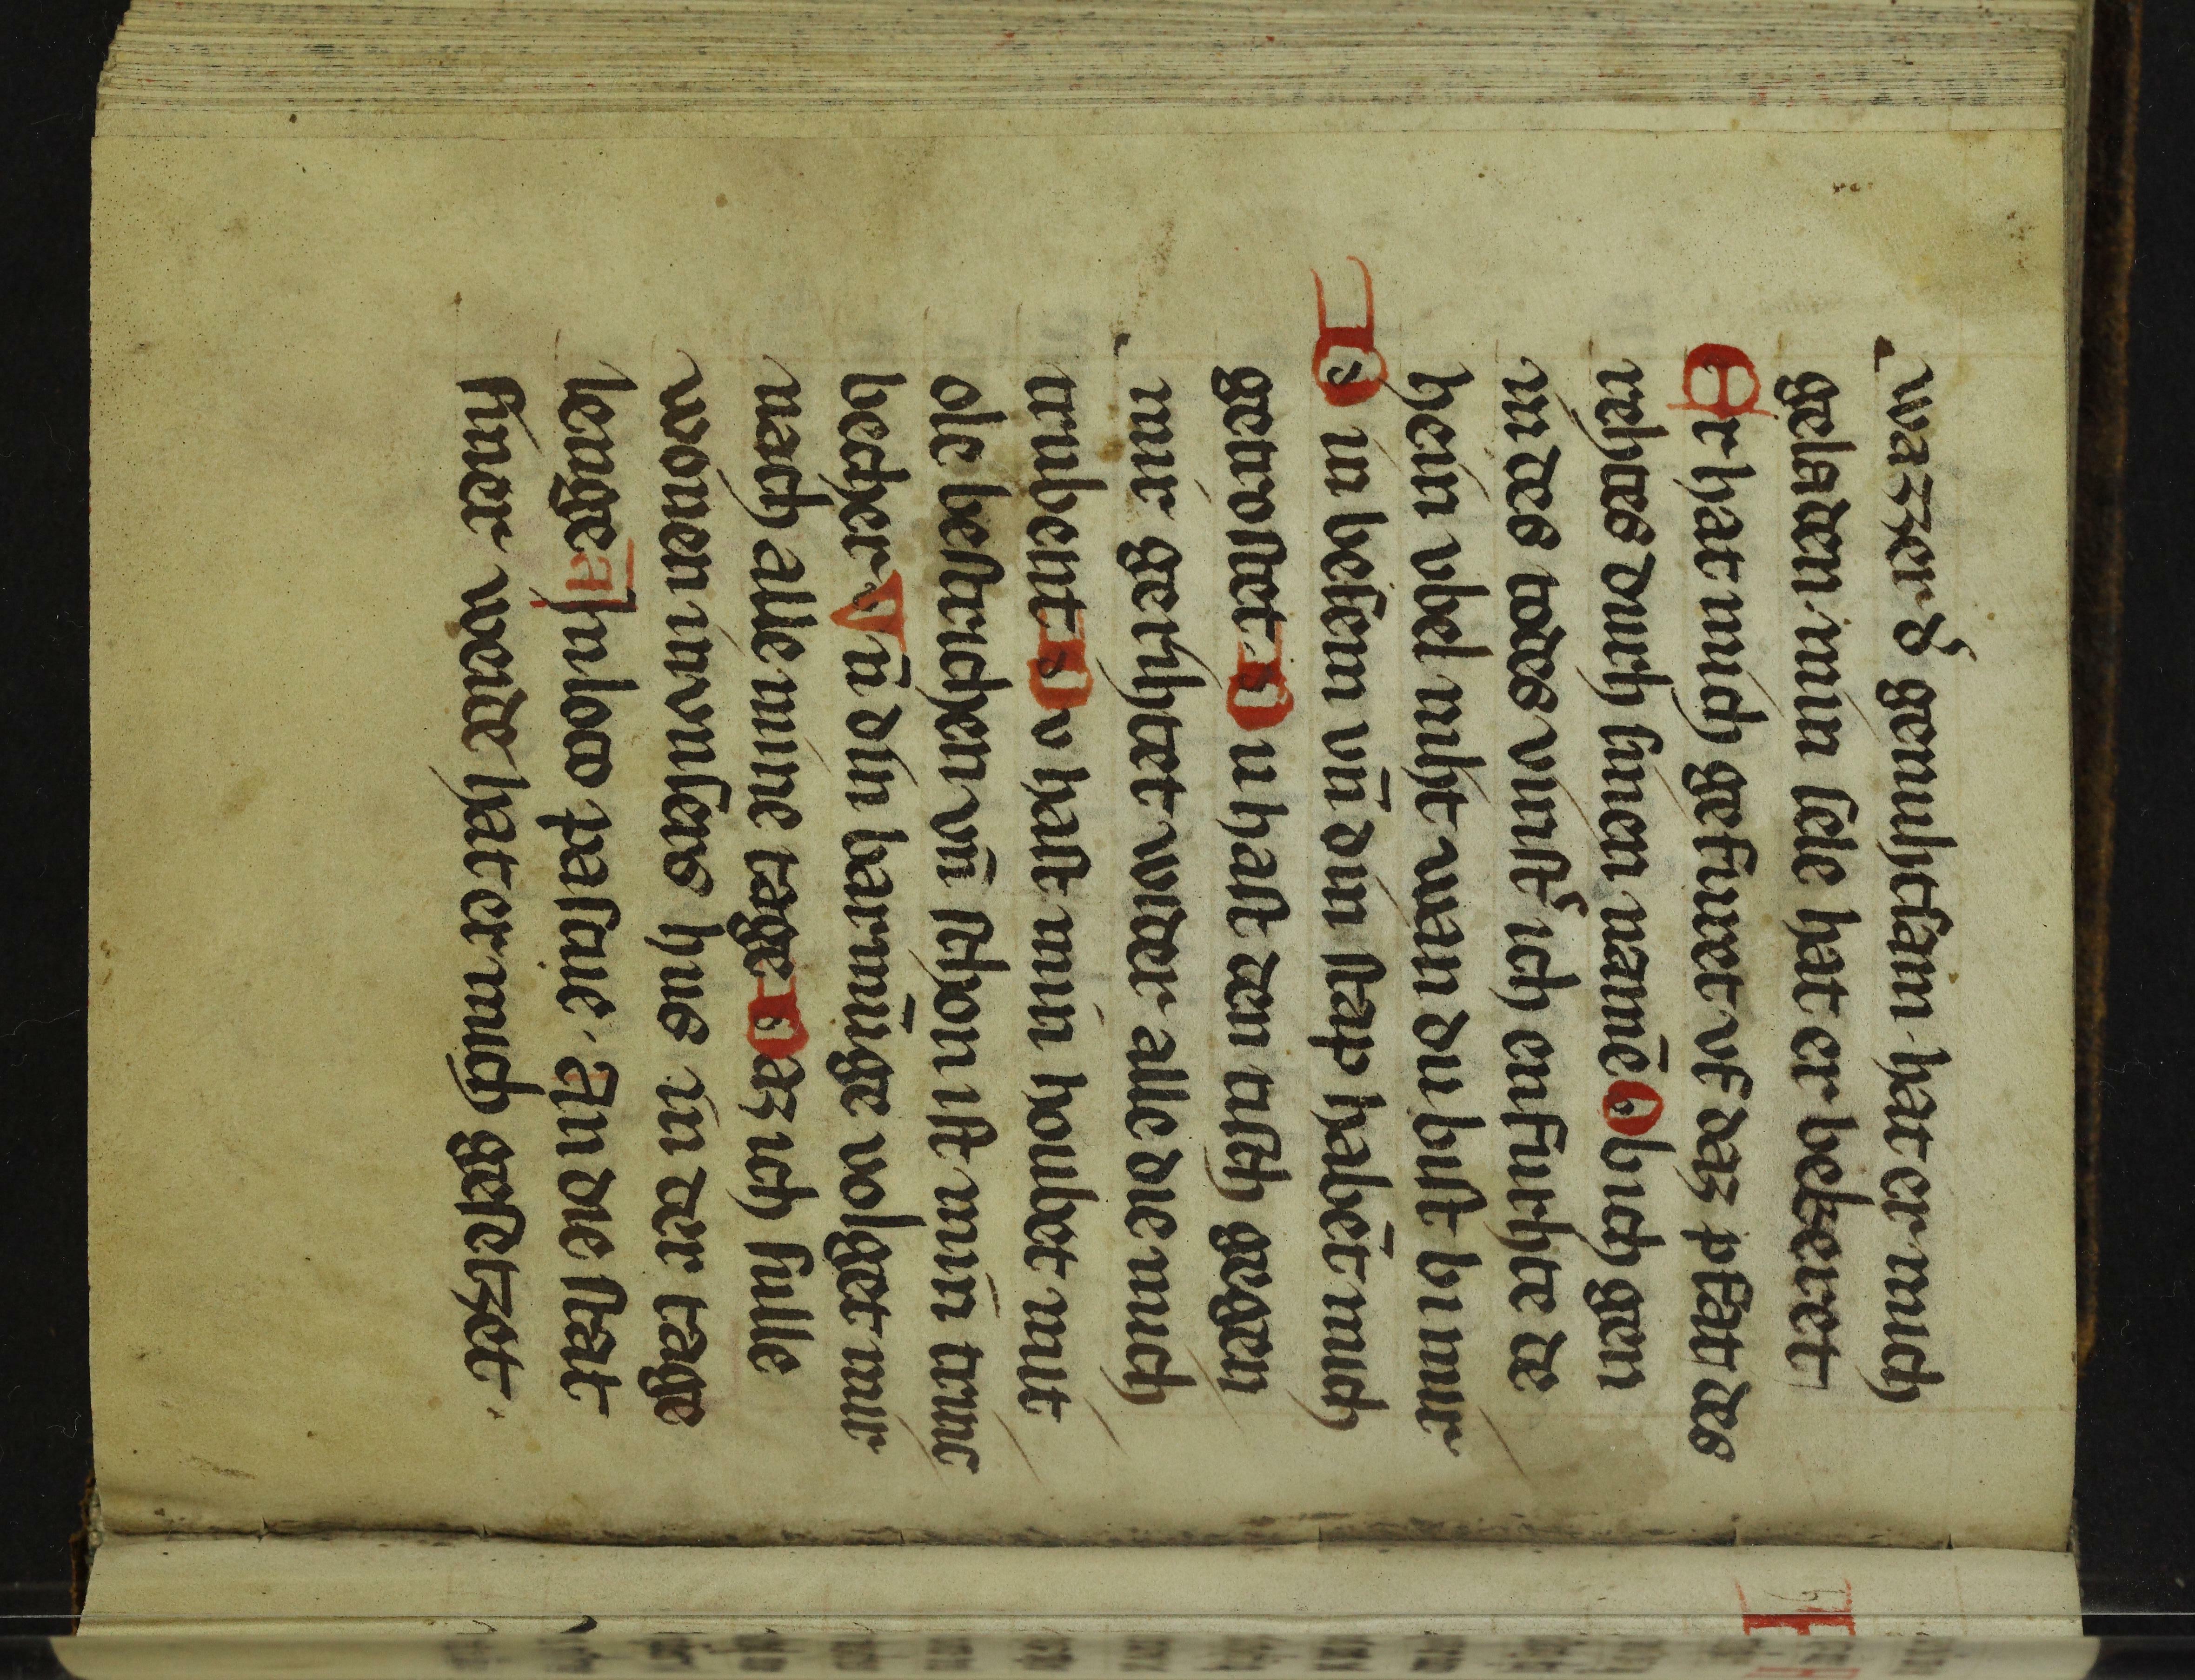 wazzer d᷑ genuhtsam hat er mich
geladen min sele hat er bekeret
Er hat mich gefuret vf daz pfat des
rehtes durch sinen namē Ob ich gen
in des todes vinst᷑ ich enfurhte de
hein vbel niht wan du bist bi mir
Din besem vn̄ din stap habēt mich
getrostet Du hast den tisch gegen
mir gerihtet wider alle die mich
trubent Dv hast min houbet mit
ole bestrichen vn̄ schon ist min trinc
becher Vn̄ din barmūge volget mir
nach alle mine tage Daz ich sulle
wonen in vnsers hus in der tage
lenge In loco pascue · An die stat
siner weide hat er mich gesetzet ·